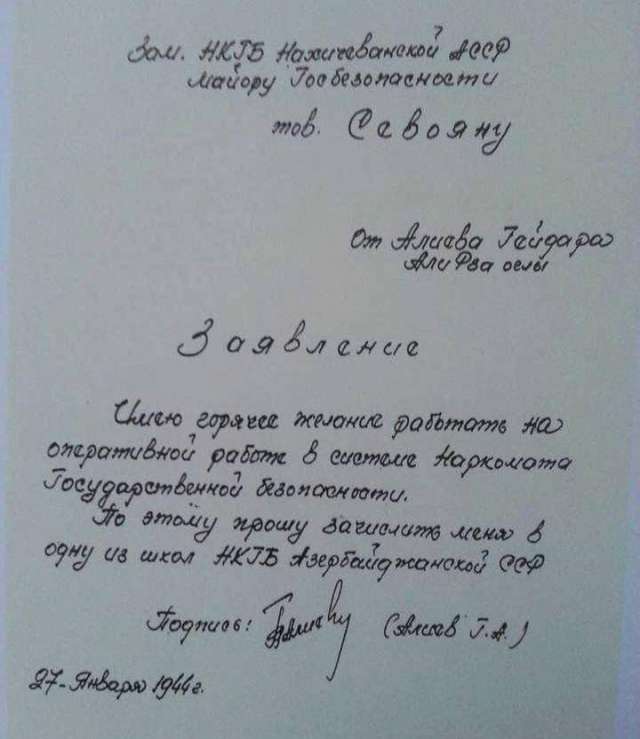 Зам. НКГБ Нахичеванской АССР
майору Госбезопасности
тов. Севояну
От Алиева Гейдара
Али Рза оглы
Заявление
Имею горячее желание работать на
оперативной работе в системе Наркомата
Государственной безопасности.
По этому прошу зачислить меня в
одну из школ НКГБ Азербайджанской ССР
Подпись: ГАлиев (Алиев Г.А.)
27-Января 1944г.